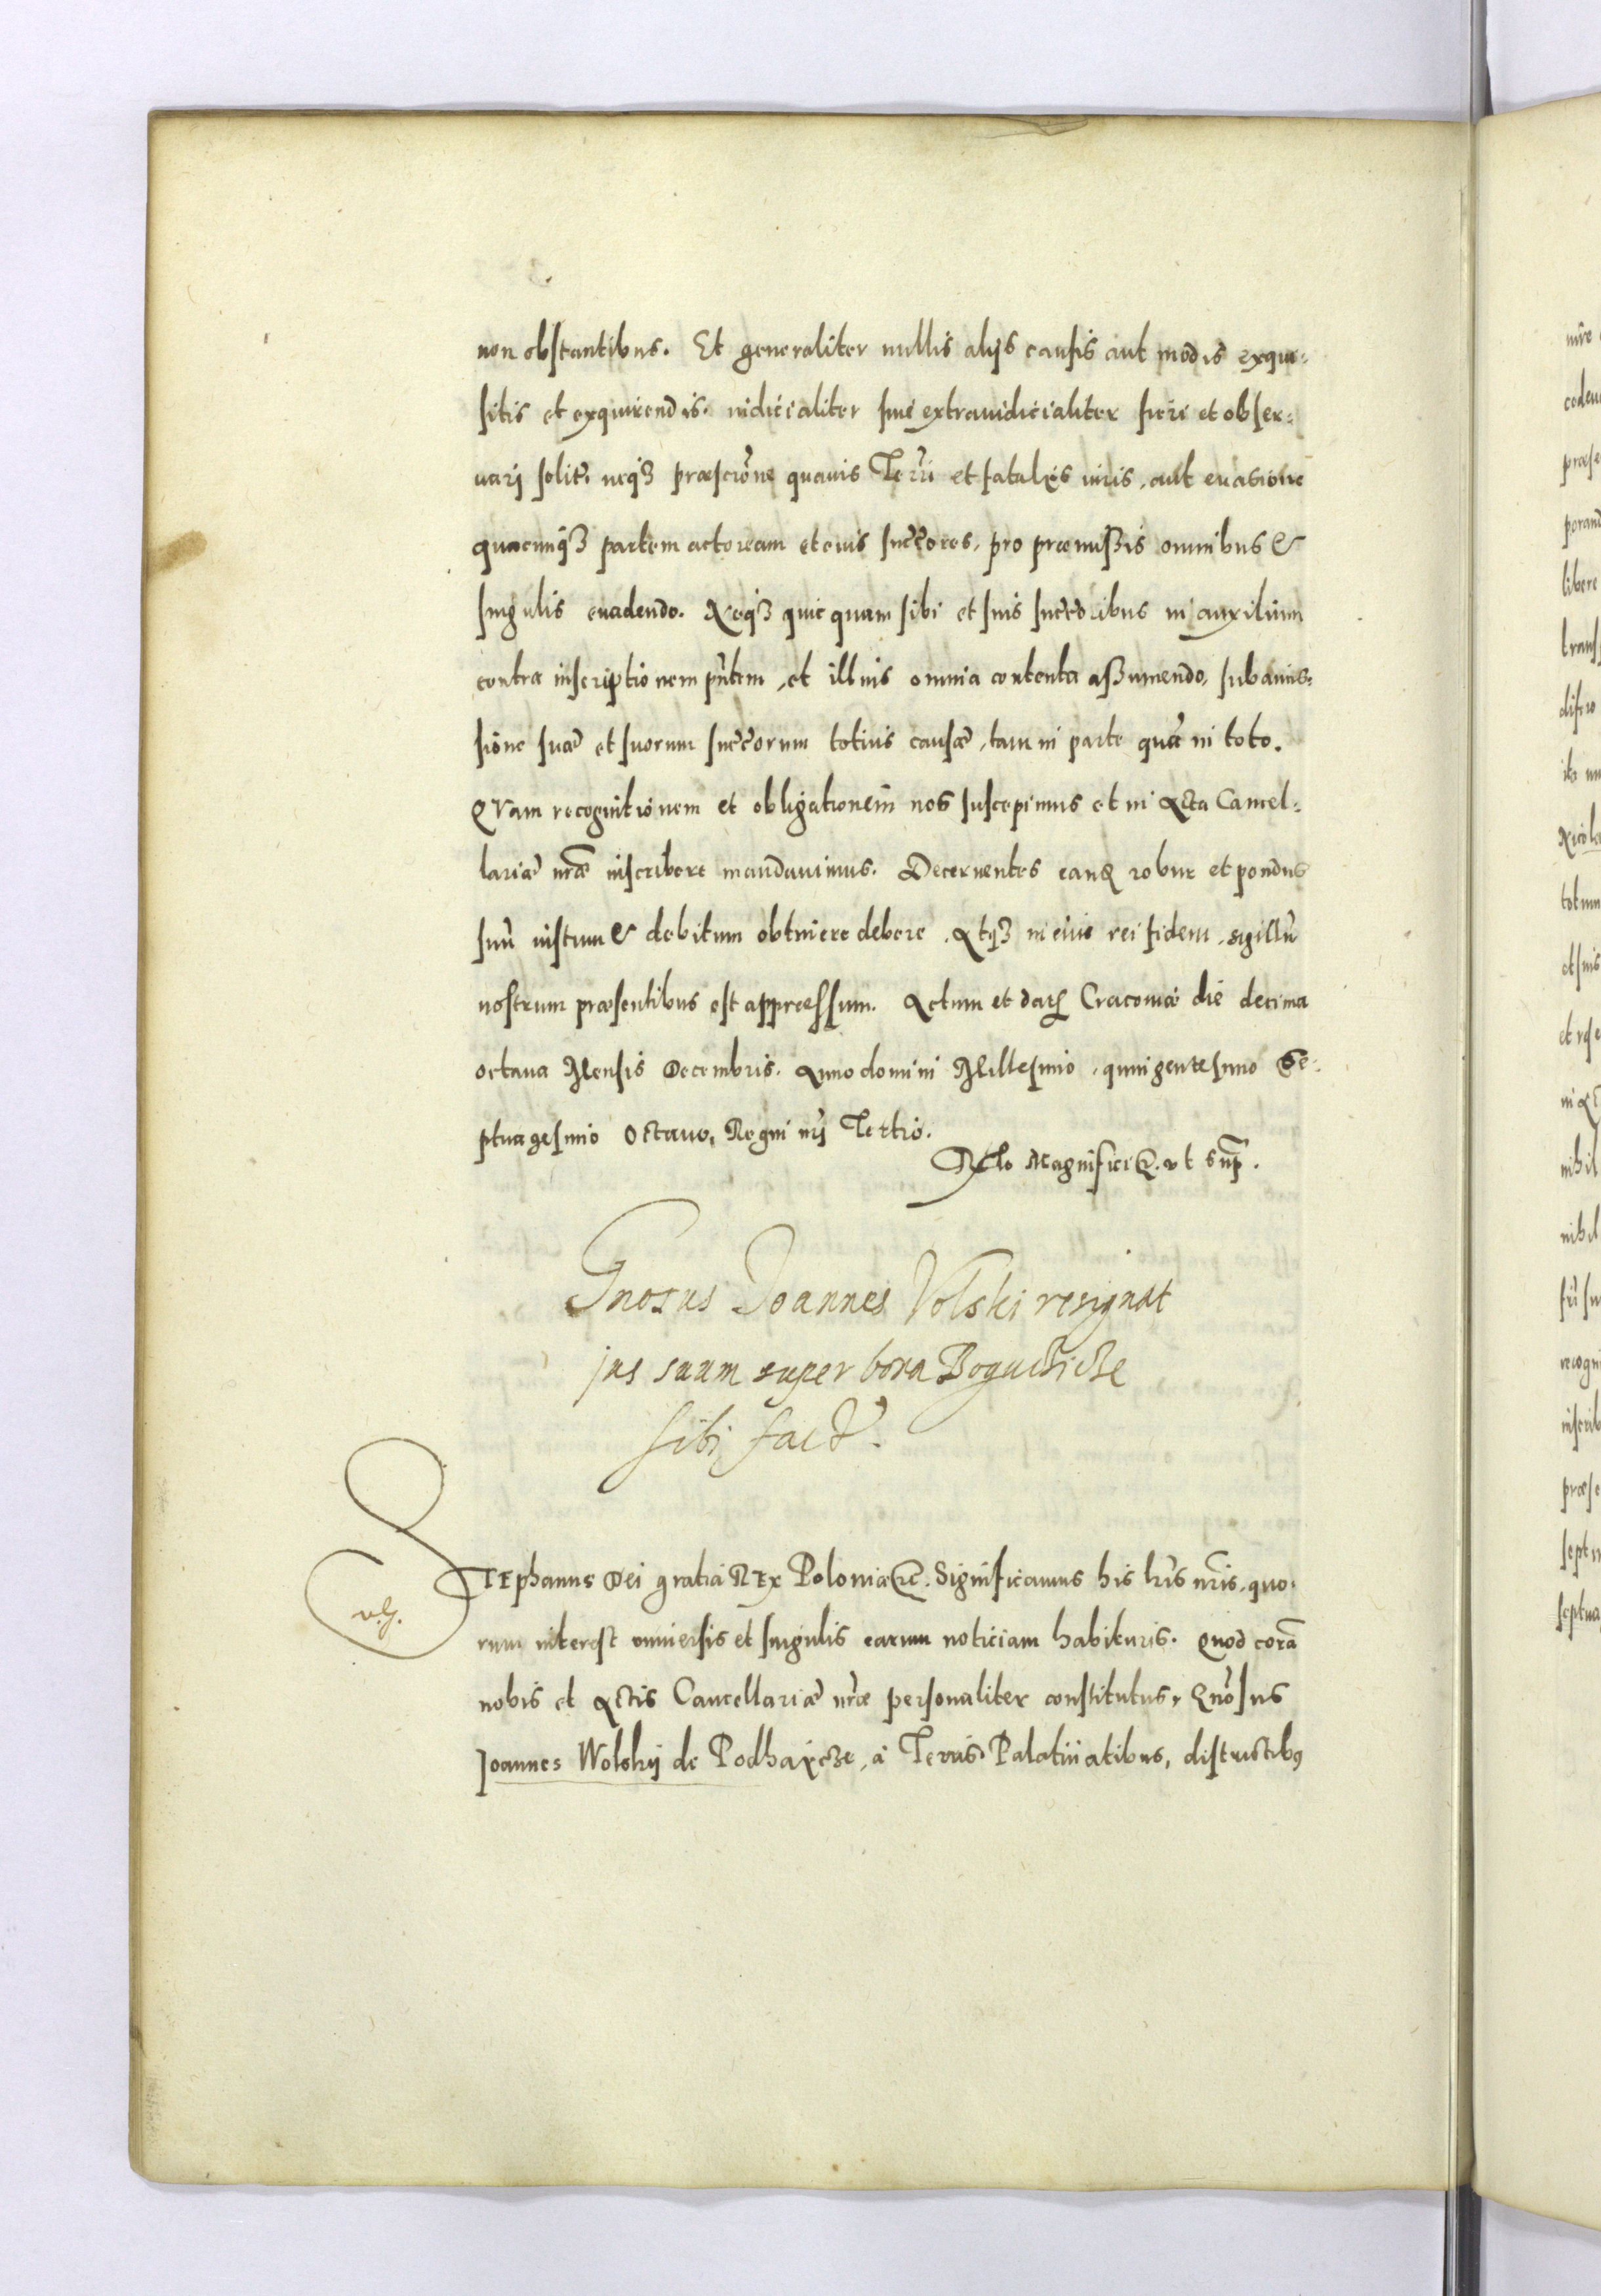 non obstantibus. Et generaliter nullis alijs causis aut modis exqui-
sitis et exquirendis. iudicialiter siue extraiudicialiter fieri et obser-
uari solit. neqз præscrōne quauis Terrī et fatalis iuris, aut euasione
quacunqз partem actoream et eius succōres, pro præmissis omnibus &
singulis euadendo. Neqз quicquam sibi et suis succōribus in auxilium
contra inscriptionem pn̄tem, et illius omnia contenta assumendo, sub amis-
sione sua et suorum succōrum totius causæ, tam in parte quā in toto.
QVam recognitionem et obligationem nos suscepimus et in Acta Cancel-
lariæ nr̄æ inscribere mandauimus. Decernentes eandē robur et pondus
suū iustum & debitum obtinere debere. Atqз in eius rei fidem, sigillū
nostrum præsentibus est appressum. Actum et datū Cracouiæ die decima
octaua Mensis Decembris. Anno domini Millesimo, quingentesimo Se-
ptuagesimo Octauo, Regni nr̄i Tertio.
Rēlo Magnifici &. vt sup̄.
Gnosus Joannes Volski resignat
jus suum super bona Boguchicze
sibi fact.
STEphanus Dei gratia REx Poloniæ &c. Significamus his lr̄is nr̄is, quo-
rum interest vniuersis et singulis earum noticiam habituris. Quod corā
nobis et Actis Cancellariæ nr̄æ personaliter constitutus, Gnōsus
Joannes Wolskij de Podhaycze, à Terris Palatinatibus, districtibus